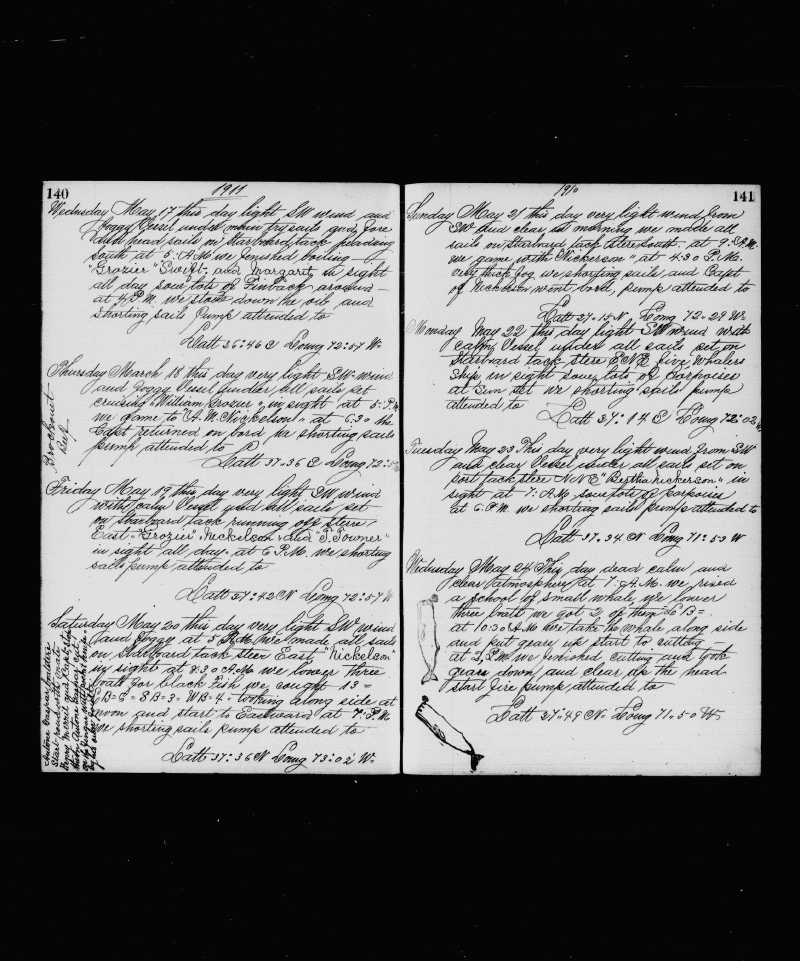 140
1911
Wednesday May 17 this day light SW wind and
foggy Vessel under main trysails and fore
and head sails on Starboard tack heading
South at 5. A.M. we finished boiling
"Grazier" Swift and Margaret in sight
all day saw lots of Finback around
at 4. P.M. we stow down the oil and
shorting sails Pump attended to
Latt 36:46 Long 72:57 W.
Thursday March 18 this day very light SW wind
and foggy Vessel under all sails set
cruising "William Grozier" in sight at 5. P.M.
we game to "A. M. Nickelson" at 6.30 the
Capt returned on bord we shorting sails
pump attended to
Latt 37.36 Long 72:
Friday May 19 this day very light SW wind
with calm Vessel und all sails set
on starboard tack running off steree
East "Grozier" Nickelson and "Towner"
in sight all day at 6 P.M. we shorting
sails pump attended to
Latt 37:42 N Long 72:57 W
Saturday May 20 this day very light SW wind
and foggy at 5 A.M. we made all sails
on starboard tack steer East "Nickelson"
in sight at 8.30 A.M. we lower three
boatt for black Fish we cought 13 =
LB = 6 = SB = 3 = WB 4 = working along side at
noon and start to Eastward at 7. P.M.
we shorting sails pump attended to
Latt 37:36 N Long 73:02 W.
Antone
141
1910
Sunday May 21 this day very light wind from
SW and clear at morning we made all
sails on starbord tack stere South at 9. A.M.
we game with "Nickerson" at 4.30 P.M.
very thick fog we shorting sails and Capt
of Nickerson went bord, pump attended to
Latt 37.15 N Long 72=29 W.
Monday May 22 this day light SW wind with
calm Vessel under all sails set on
starbord tack stere ENE five Whalers
Ship in sight sow lots of Porpoises
at Sun set we shorting sails pump
attended to
Latt 37:14 Long 72:02
Tuesday May 23 This day very light wind from SW
and clear Vessel under all sails set on
port tack stere NNE "Bertha Nickerson" in
sight at 7: A.M. sow lots of porpoises
at 6. P.M. we shorting sails pump attended to
Latt 37.34 N Long 71=53 W
Wednesday May 24 This day dead calm and
clear atmosphere, at 7. A.M. we rised
a school of small whale, we lower
three boatt we got 2 of them LB =
at 10:30 A.M. we take the whale along side
and put gears up start to cutting
at 2. P.M. we finished cutting and took
gears down and clear up the head
start fire pump attended to
Latt 37=49 N. Long 71.50 W